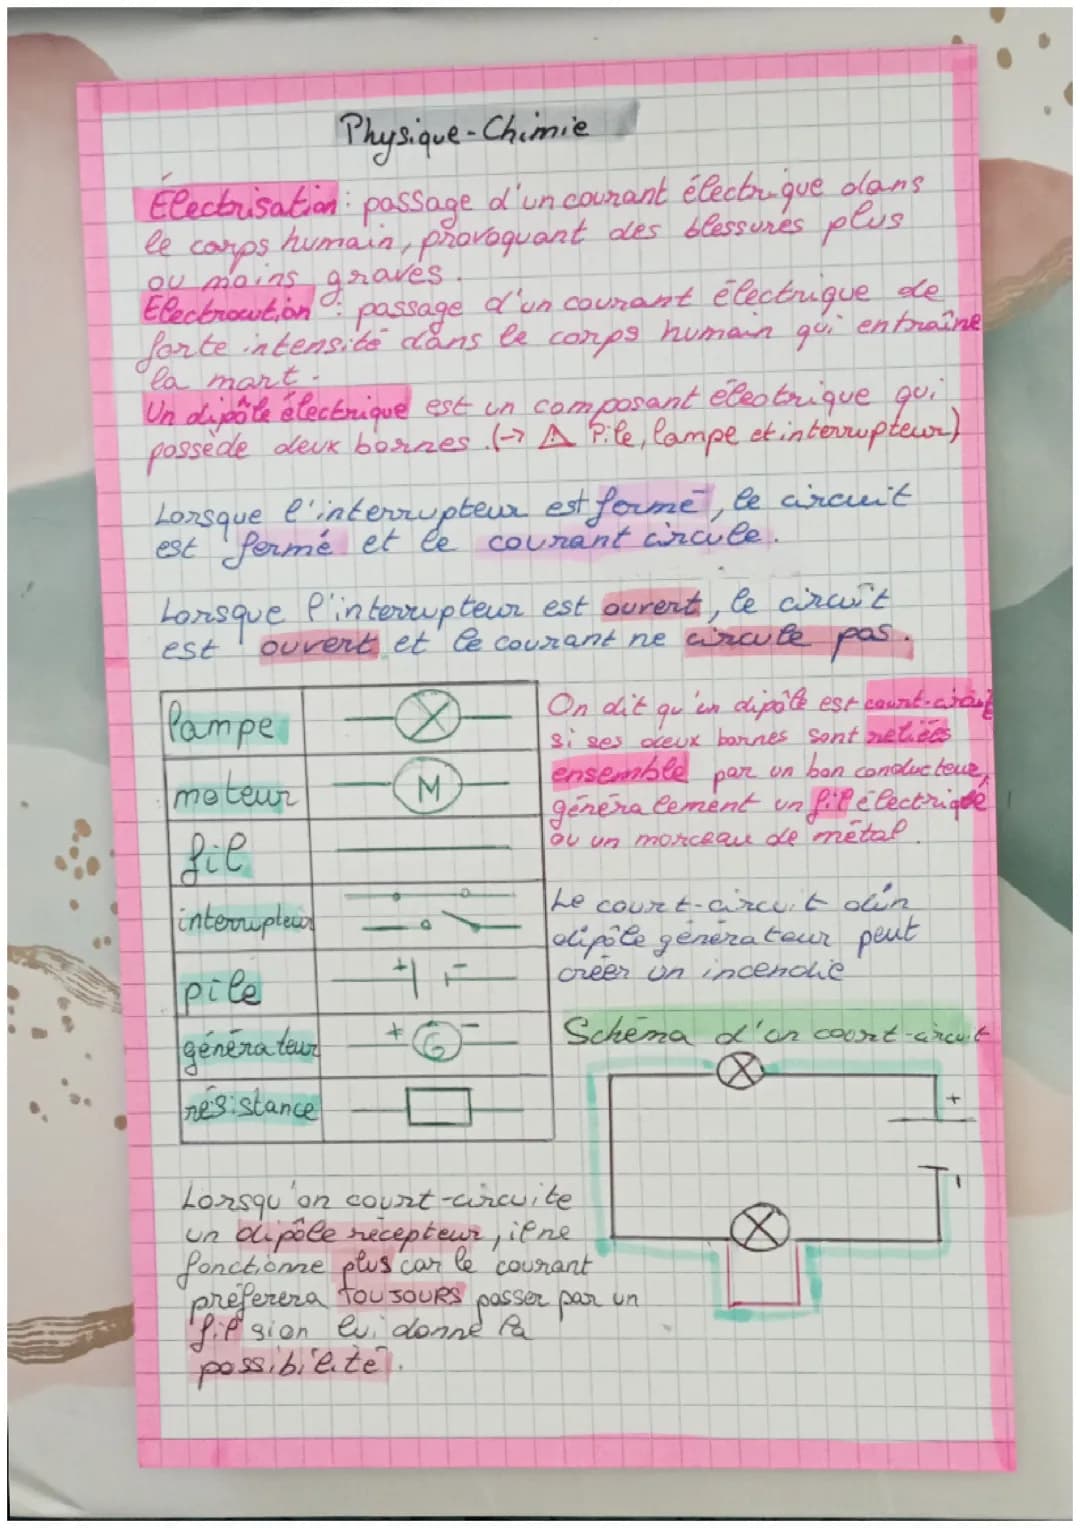 Physique-Chimie
Électrisation : passage d'un courant électrique dans
le corps humain, provoquant des blessures plus
ou moins graves.
Electrocution : passage d'un courant électrique de
forte intensité dans le corps humain qui entraîne
la mort.
Un dipôle électrique est un composant électrique qui
possède deux bornes. (→ ⚠ Pile, lampe et interrupteur)
Lorsque l'interrupteur est fermé, le circuit
est fermé et le courant circule.
Lorsque l'interrupteur est ouvert, le circuit
est ouvert et le courant ne circule pas.
lampe
moteur
M
fil
interrupteur
pile
+ -
générateur
+ G -
résistance
On dit qu'un dipôle est court-circuité
si ses deux bornes sont reliées
ensemble par un bon conducteur,
généralement un fil électrique
ou un morceau de métal.
Le court-circuit d'un
dipôle générateur peut
créer un incendie
Schéma d'un court-circuit
+
-
Lorsqu'on court-circuite
un dipôle récepteur, il ne
fonctionne plus car le courant
préferera TOUJOURS passer par un
fil si on lui donne la
possibilité.